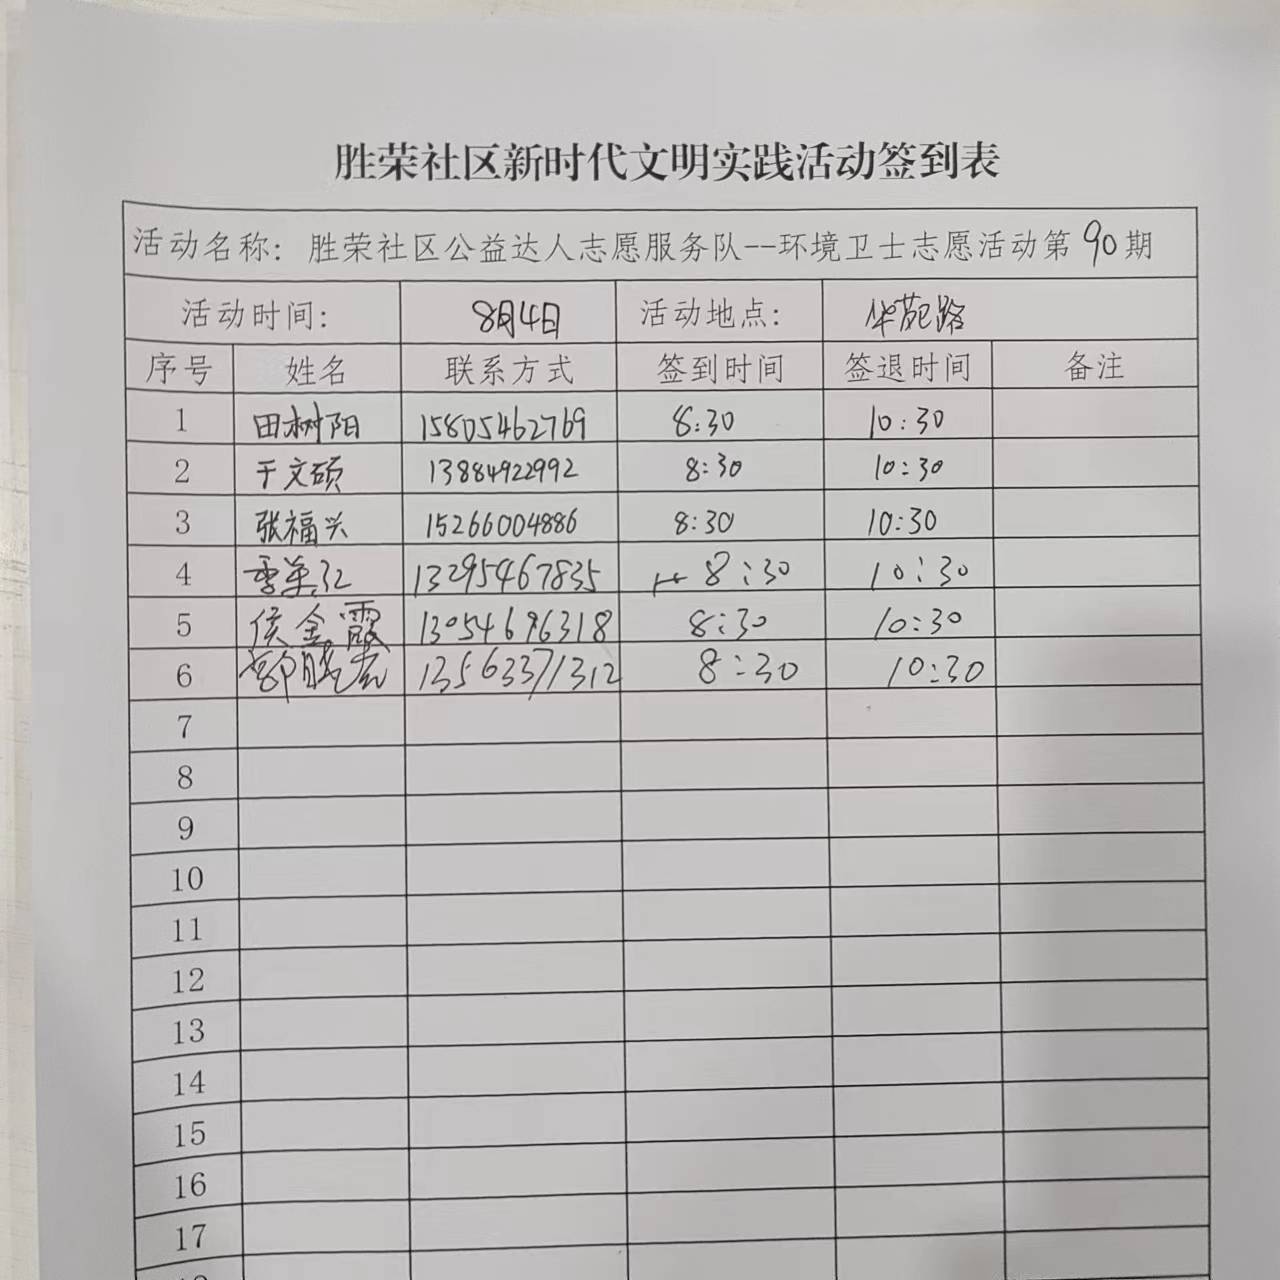 胜荣社区新时代文明实践活动签到表
活动名称：胜荣社区公益达人志愿服务队--环境卫士志愿活动第90期
活动时间： 8月4日 活动地点： 华苑路
序号 姓名 联系方式 签到时间 签退时间 备注
1 田树阳 15805462769 8:30 10:30
2 于文硕 13884922992 8:30 10:30
3 张福兴 15266004886 8:30 10:30
4 13295467835 8:30 10:30
5 侯金霞 13054696318 8:30 10:30
6 13563371312 8:30 10:30
7
8
9
10
11
12
13
14
15
16
17